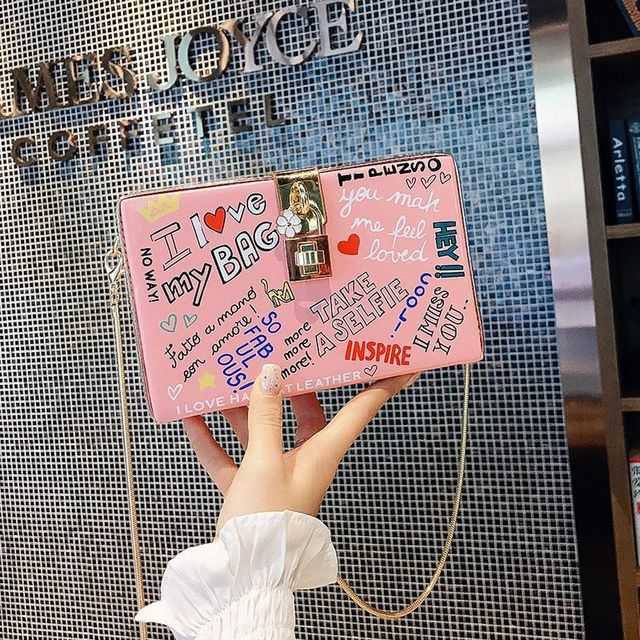 MES JOYCE
COFFETEL
Arletta
TI PENSO
I love
my BAG
NO WAY!
you mak
me feel
loved
HEY!!
Fatto a mano
con amore
SO
FAB
UL
OUS!
more
more
more!
TAKE
A SELFIE
INSPIRE
I MISS
YOU..
I LOVE HA AT LEATHER